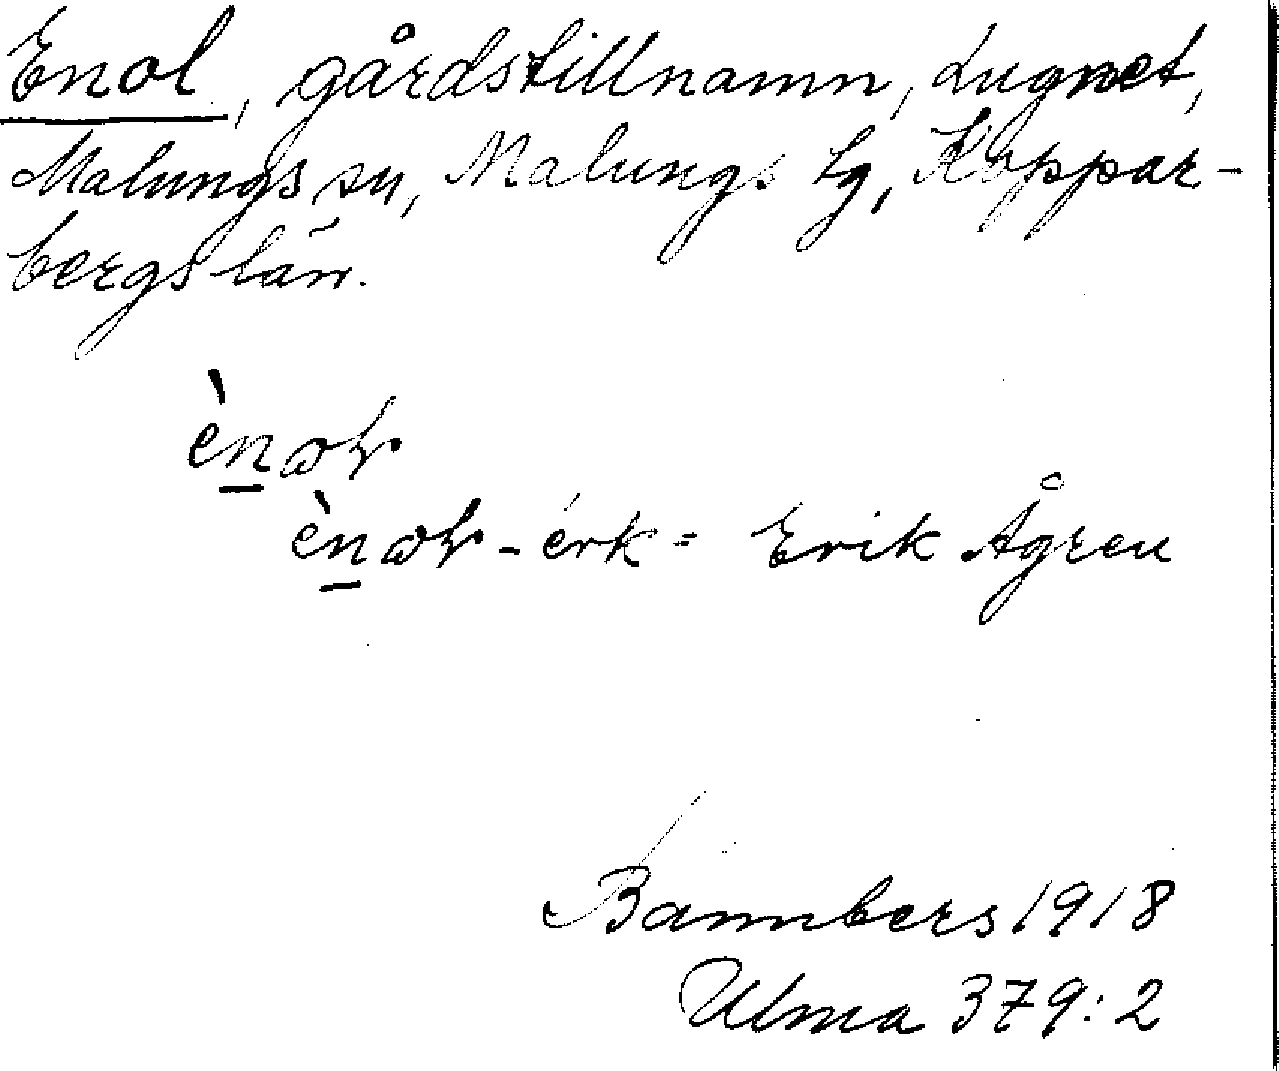 Enol, gårdstillnamn, Lugnet,
Malungs sn, Malungs tg, Koppar-
bergs län.
èn
èn - érk = Erik Ågren
Bannbers 1918
Ulma 379:2